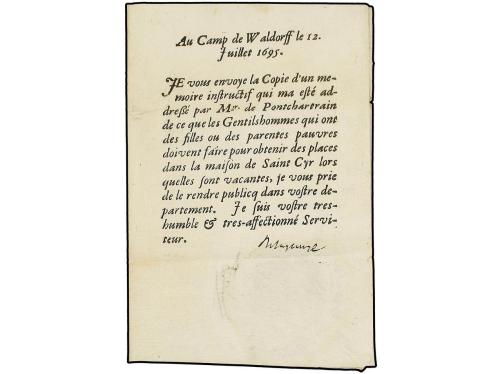 Au Camp de Waldorff le 12.
Juillet 1695.
JE vous envoye la Copie d'un me-
moire instructif qui ma esté ad-
dressé par Mr. de Pontchartrain
de ce que les Gentilshommes qui ont
des filles ou des parentes pauvres
doivent faire pour obtenir des places
dans la maison de Saint Cyr lors
quelles sont vacantes, je vous prie
de le rendre publicq dans vostre de-
partement. Je suis vostre tres-
humble & tres-affectionné Servi-
teur.